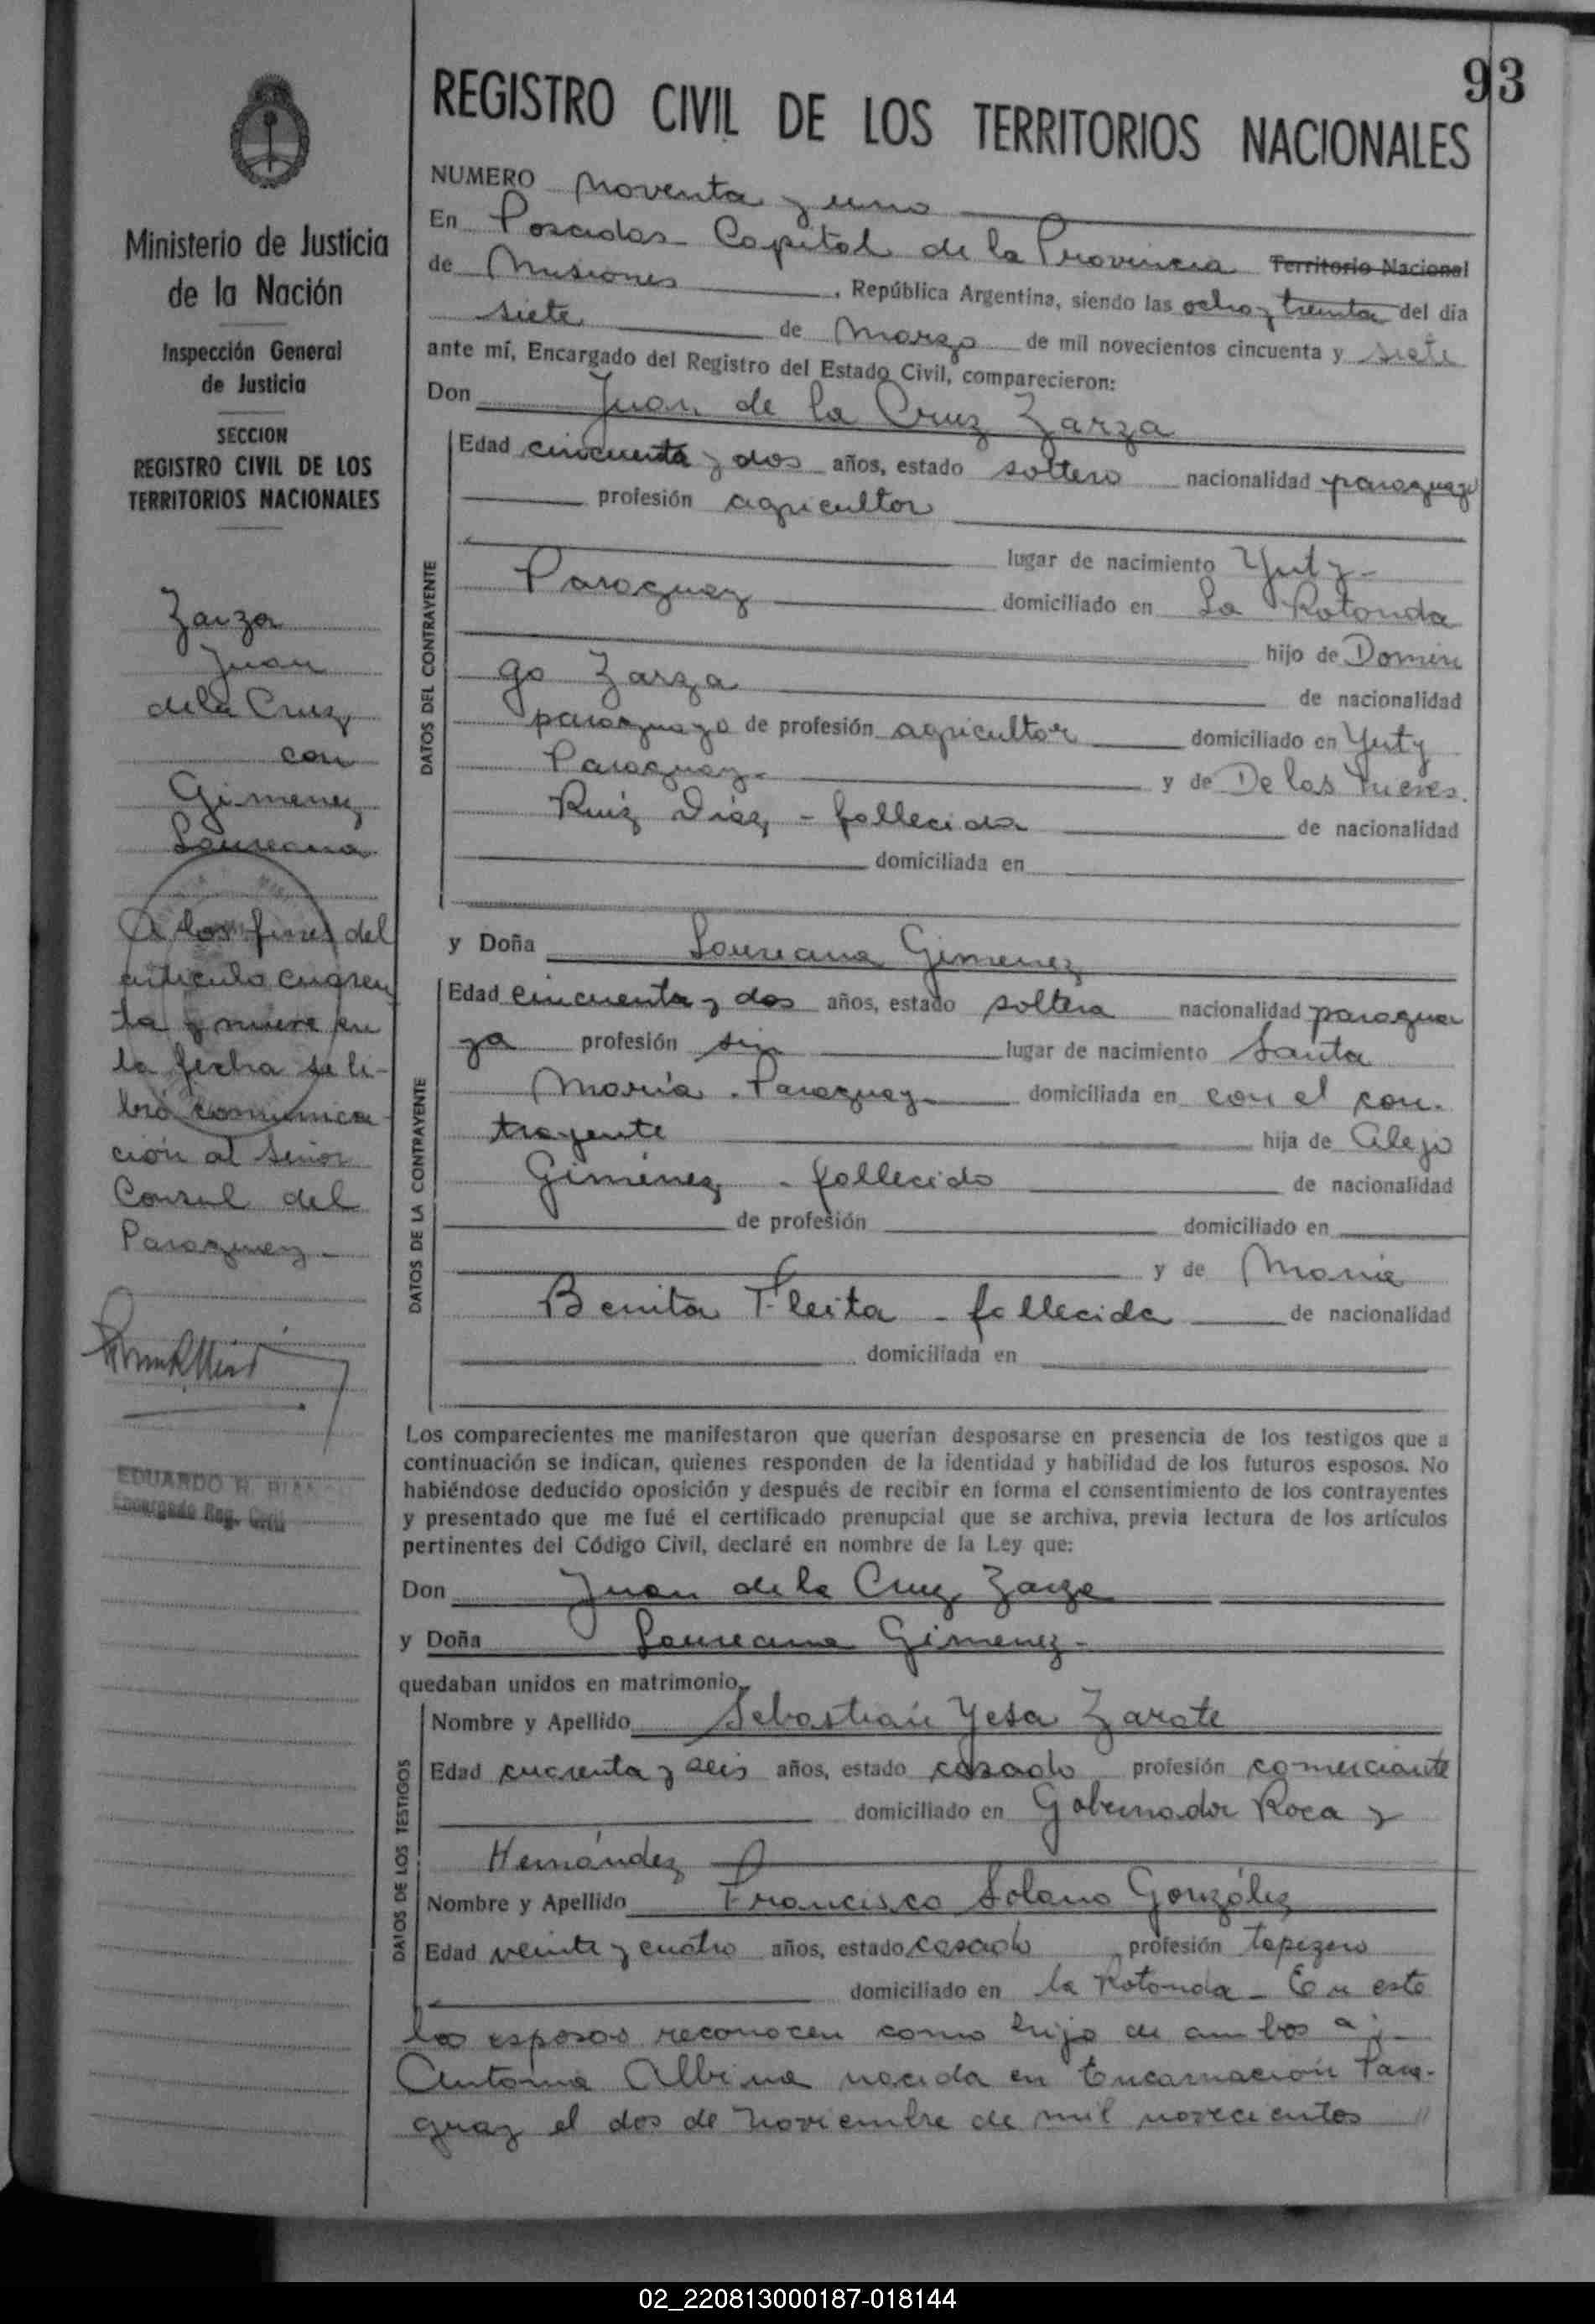 93
REGISTRO CIVIL DE LOS TERRITORIOS NACIONALES
Ministerio de Justicia
de la Nación
Inspección General
de Justicia
SECCION
REGISTRO CIVIL DE LOS
TERRITORIOS NACIONALES
Zarza
Juan
de la Cruz
con
Gimenez
Laureana
A los fines del
articulo cuaren
ta y nueve en
la fecha se li-
bró comunica
ción al Señor
Consul del
Paraguay -
EDUARDO R.
Encargado Reg. Civil
NUMERO Noventa y uno
En Posadas Capital de la Provincia Territorio Nacional
de Misiones , República Argentina, siendo las ocho y treinta del día
siete de Marzo de mil novecientos cincuenta y siete
ante mí, Encargado del Registro del Estado Civil, comparecieron:
Don Juan de la Cruz Zarza
DATOS DEL CONTRAYENTE
Edad cincuenta y dos años, estado soltero nacionalidad paraguayo
profesión agricultor
lugar de nacimiento Yuty -
Paraguay domiciliado en La Rotonda
hijo de Domin
go Zarza de nacionalidad
paraguayo de profesión agricultor domiciliado en Yuty
Paraguay - y de De las Nieves
Ruiz Diaz - fallecida de nacionalidad
domiciliada en
y Doña Laureana Gimenez
DATOS DE LA CONTRAYENTE
Edad cincuenta y dos años, estado soltera nacionalidad paragua
ya profesión sin lugar de nacimiento Santa
María - Paraguay domiciliada en con el con-
trayente hija de Alejo
Giménez - fallecido de nacionalidad
de profesión domiciliado en
y de María
Benita Fleita - fallecida de nacionalidad
domiciliada en
Los comparecientes me manifestaron que querían desposarse en presencia de los testigos que a
continuación se indican, quienes responden de la identidad y habilidad de los futuros esposos. No
habiéndose deducido oposición y después de recibir en forma el consentimiento de los contrayentes
y presentado que me fué el certificado prenupcial que se archiva, previa lectura de los artículos
pertinentes del Código Civil, declaré en nombre de la Ley que:
Don Juan de la Cruz Zarza
y Doña Laureana Gimenez -
quedaban unidos en matrimonio.
DATOS DE LOS TESTIGOS
Nombre y Apellido Sebastián Yesa Zarate
Edad cuarenta y seis años, estado casado profesión comerciante
domiciliado en Gobernador Roca y
Hernández
Nombre y Apellido Francisco Solano González
Edad veinte y cuatro años, estado casado profesión tapizero
domiciliado en la Rotonda - En este
los esposos reconocen como hijo de ambos a:
Antonia Albina nacida en Encarnación Para-
guay el dos de Noviembre de mil novecientos //
02_220813000187-018144